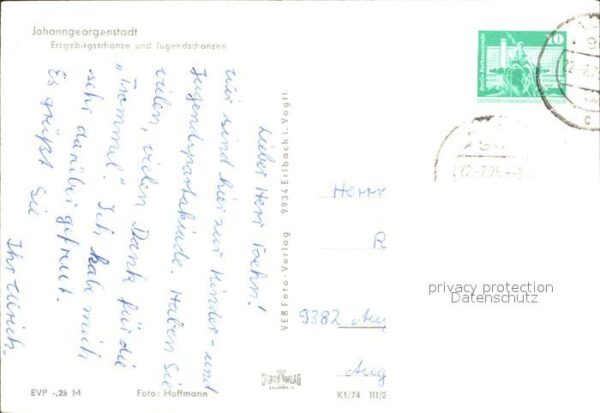 Johanngeorgenstadt
Erzgebirgsschanze und Jugendschanzen
Lieber Herr
wir sind hier zur Kinder- und
Jugendspartakiade. Haben Sie
vielen, vielen Dank für die
"Trommel". Ich habe mich
sehr darüber gefreut.
Es grüßt Sie
Ihr Ulrich.
EVP -,25 M
Foto: Hoffmann
VEB Foto-Verlag 9934 Erlbach i. Vogtl.
K1/74 III/2
10
Berlin Rathausstraße
Herrn
R
9382 Aug
A
22.-7.75-
privacy protection
Datenschutz